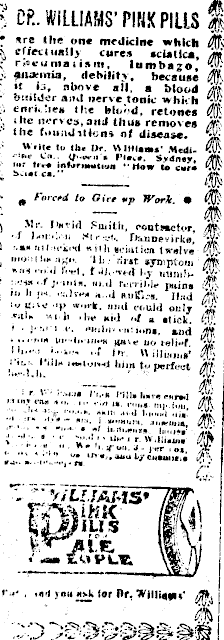 DR. WILLIAMS' PINK PILLS
are the one medicine which
effectually cures sciatica,
rheumatism, lumbago,
anæmia, debility, because
it is, above all, a blood
builder and nerve tonic which
enriches the blood, retones
the nerves, and thus removes
the foundations of disease.
Write to the Dr. Williams' Medi-
cine Co., Queen's Place, Sydney,
for free information "How to cure
Sciatica."
Forced to Give up Work.
Mr. David Smith, contractor,
of London Street, Dannevirke,
was attacked with sciatica twelve
months ago. The first symptom
was cold feet, followed by numb-
ness of joints, and terrible pains
in hips, calves and ankles. Had
to give up work, and could only
walk with the aid of a stick.
embrocations, and
various medicines gave no relief.
Three boxes of Dr. Williams'
Pink Pills restored him to perfect
health.
Dr. Williams' Pink Pills have cured
blood
anæmia,
of influenza,
Sold by the Dr. Williams
Wellington, 3/- per box,
and by chemists
and storekeepers
WILLIAMS'
PINK
PILLS
FOR
PALE
PEOPLE
and you ask for Dr. Williams'